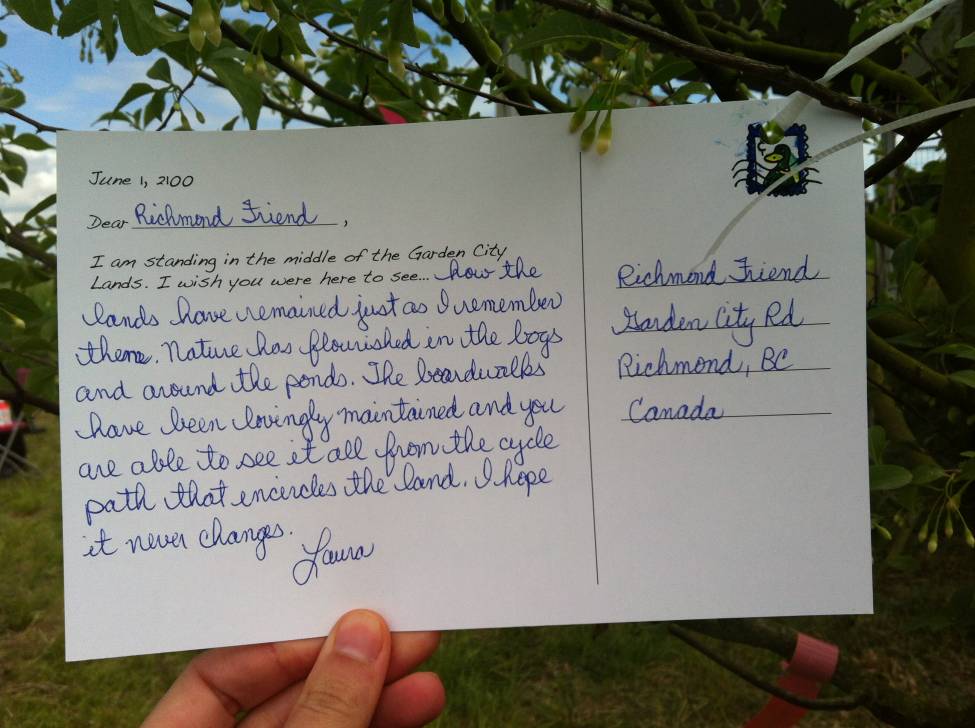 June 1, 2100
Dear Richmond Friend,
I am standing in the middle of the Garden City
Lands. I wish you were here to see... how the
lands have remained just as I remember
them. Nature has flourished in the bogs
and around the ponds. The boardwalks
have been lovingly maintained and you
are able to see it all from the cycle
path that encircles the land. I hope
it never changes.
Laura
Richmond Friend
Garden City Rd
Richmond, BC
Canada